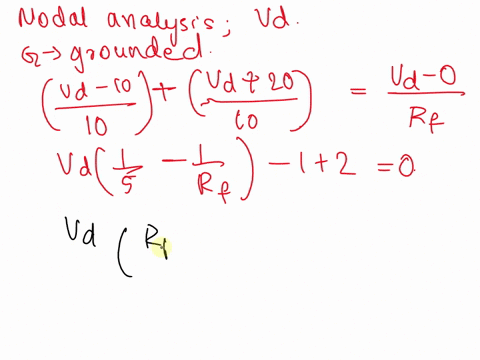 Nodal analysis; Vd.
G→ grounded.
(Vd - 10 / 10) + (Vd + 20 / 10) = Vd - 0 / Rf
Vd (1/5 - 1/Rf) - 1 + 2 = 0
Vd ( Rf